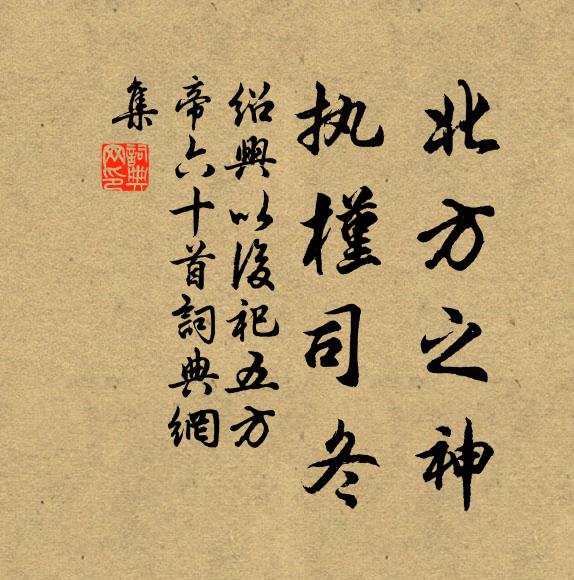 北方之神
执權司冬
紹興以後祀五方
帝六十首詞典網
集
詞典
网印